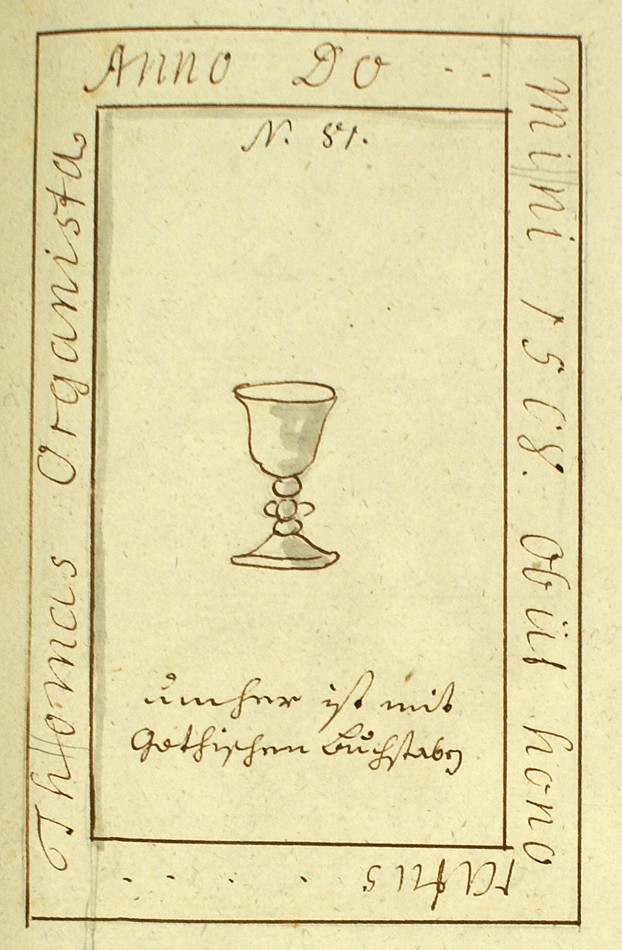 Anno Do . .
mini 1508. obiit hono
ratus . . . .
Thomas Organista
N. 81.
umher ist mit
Gothischen Buchstaben